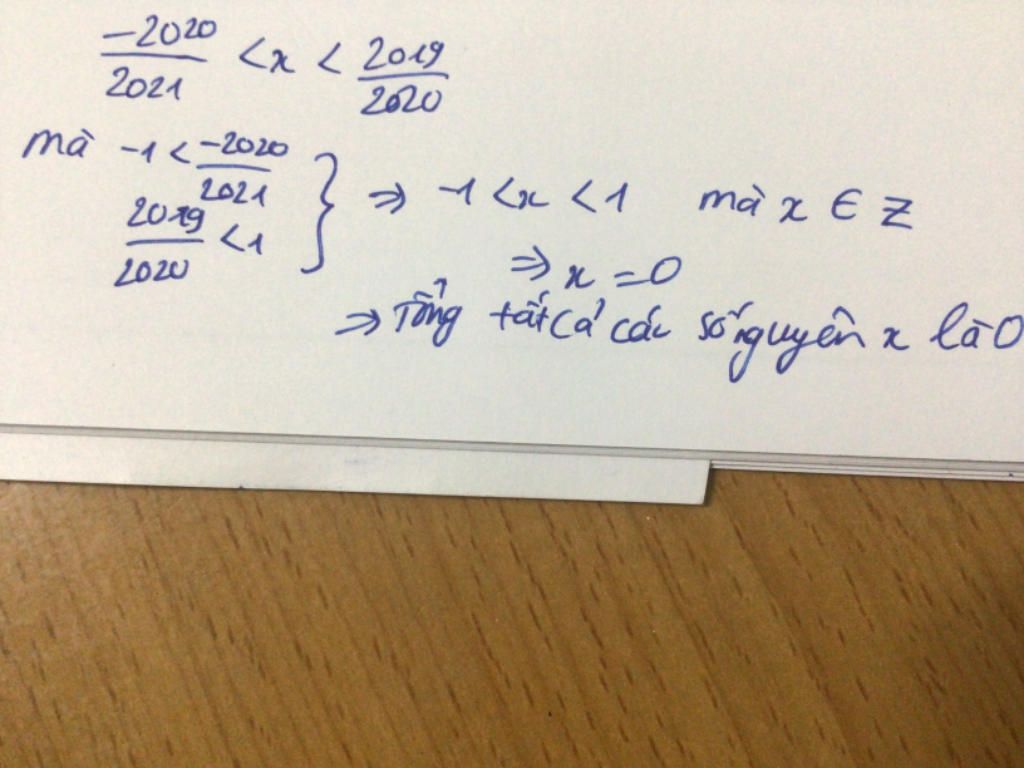 -2020/2021 < x < 2019/2020
mà -1 < -2020/2021
2019/2020 < 1
} ⇒ -1 < x < 1 mà x ∈ Z
⇒ x = 0
⇒ Tổng tất cả các số nguyên x là 0